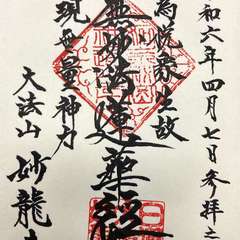 和六年四月七日参拝之
為悦衆生故
無妙法蓮華経
現無量神力
大法山 妙龍